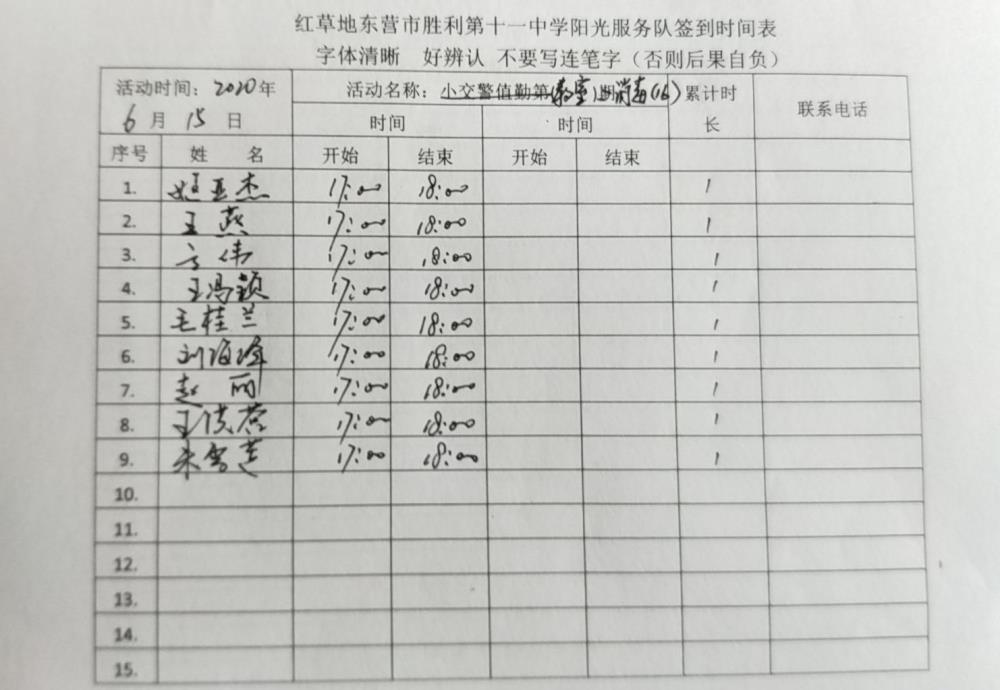 红草地东营市胜利第十一中学阳光服务队签到时间表
字体清晰 好辨认 不要写连笔字（否则后果自负）
活动时间：2020年 6月15日 活动名称：小交警值勤第（教室）消毒(16) 累计时长 联系电话
时间 时间
序号 姓名 开始 结束 开始 结束
1. 姚亚杰 17:00 18:00 1
2. 王燕 17:00 18:00 1
3. 方伟 17:00 18:00 1
4. 王冯颖 17:00 18:00 1
5. 毛桂兰 17:00 18:00 1
6. 刘海峰 17:00 18:00 1
7. 赵丽 17:00 18:00 1
8. 王 17:00 18:00 1
9. 朱雪莲 17:00 18:00 1
10.
11.
12.
13.
14.
15.